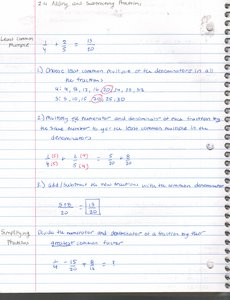 2.4 Adding and Subtracting Fractions
Least Common
Multiple
1/4 + 2/5 = 13/20
1.) Choose least common multiple of the denominators in all
the fractions
4: 4, 8, 12, 16, 20, 24, 28
5: 5, 10, 15, 20, 25, 30
2.) Multiply the numerator and denominator of each fraction by
the same number to get the least common multiple in the
denominators
1(5)/4(5) + 2(4)/5(4) = 5/20 + 8/20
3.) Add/subtract the new fractions with the common denominator
5+8/20 = 13/20
Simplifying
Fractions
Divide the numerator and denominator of a fraction by their
greatest common factor